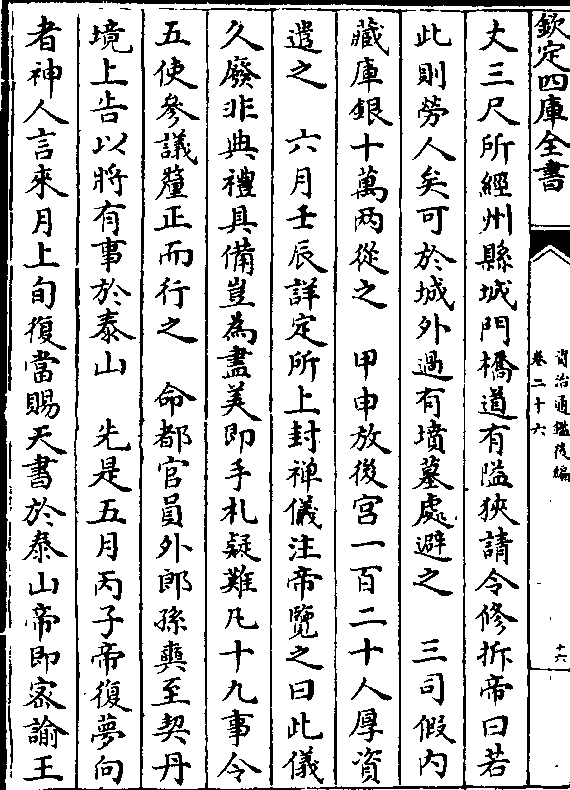 欽定四庫全書
資治通鑑後編
卷二十六
十六
丈三尺所經州縣城門橋道有隘狹請令修拆帝曰若
此則勞人矣可於城外過有墳墓處避之　三司假内
藏庫銀十萬兩從之　甲申放後宫一百二十人厚資
遣之　六月壬辰詳定所上封禪儀注帝覽之曰此儀
久廢非典禮具備豈為盡美即手札疑難凡十九事令
五使參議釐正而行之　命都官員外郎孫奭至契丹
境上告以將有事於泰山　先是五月丙子帝復夢向
者神人言來月上旬復當賜天書於泰山帝即宻諭王